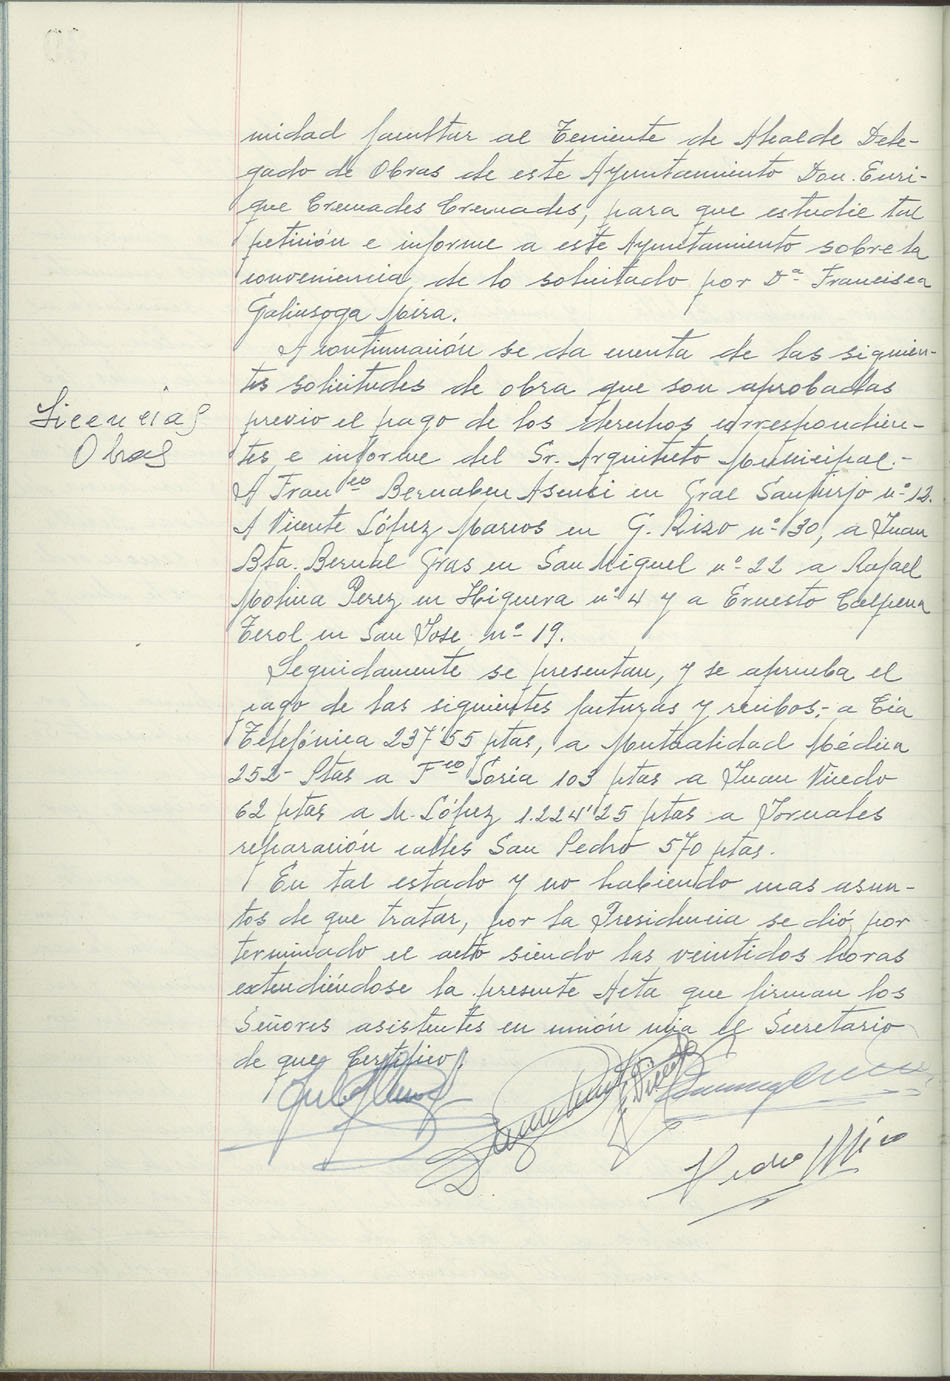 nidad facultar al Teniente de Alcalde Dele-
gado de Obras de este Ayuntamiento Don Enri-
que Cremades Cremades, para que estudie tal
petición e informe a este Ayuntamiento sobre la
conveniencia, de lo solicitado por Dª Francisca
Galinsoga Mira.
A continuación se da cuenta de las siguien-
tes solicitudes de obra que son aprobadas
Licencias
Obras
previo el pago de los derechos correspondien-
tes e informe del Sr. Arquitecto Municipal.-
A Franco Bernabeu Asensi en Gral Sanjurjo nº 12.
A Vicente López Marcos en G. Rizo nº 130, a Juan
Bta. Bernal Gras en San Miguel nº 22 a Rafael
Molina Perez en Higuera nº 4 y a Ernesto Calpena
Terol en San Jose nº 19.
Seguidamente se presentan, y se aprueba el
pago de las siguientes facturas y recibos,- a Cia
Telefónica 237'55 ptas, a Mutualidad Médica
252- Ptas a Fco Soria 103 ptas a Juan Vicedo
62 ptas a M. López 1.224'25 ptas a Jornales
reparación calles San Pedro 570 ptas.
En tal estado y no habiendo mas asun-
tos de que tratar, por la Presidencia se dió por
terminado el acto siendo las veintidos horas
extendiéndose la presente Acta que firman los
Señores asistentes en unión mia el Secretario
de que Certifico.
Pedro